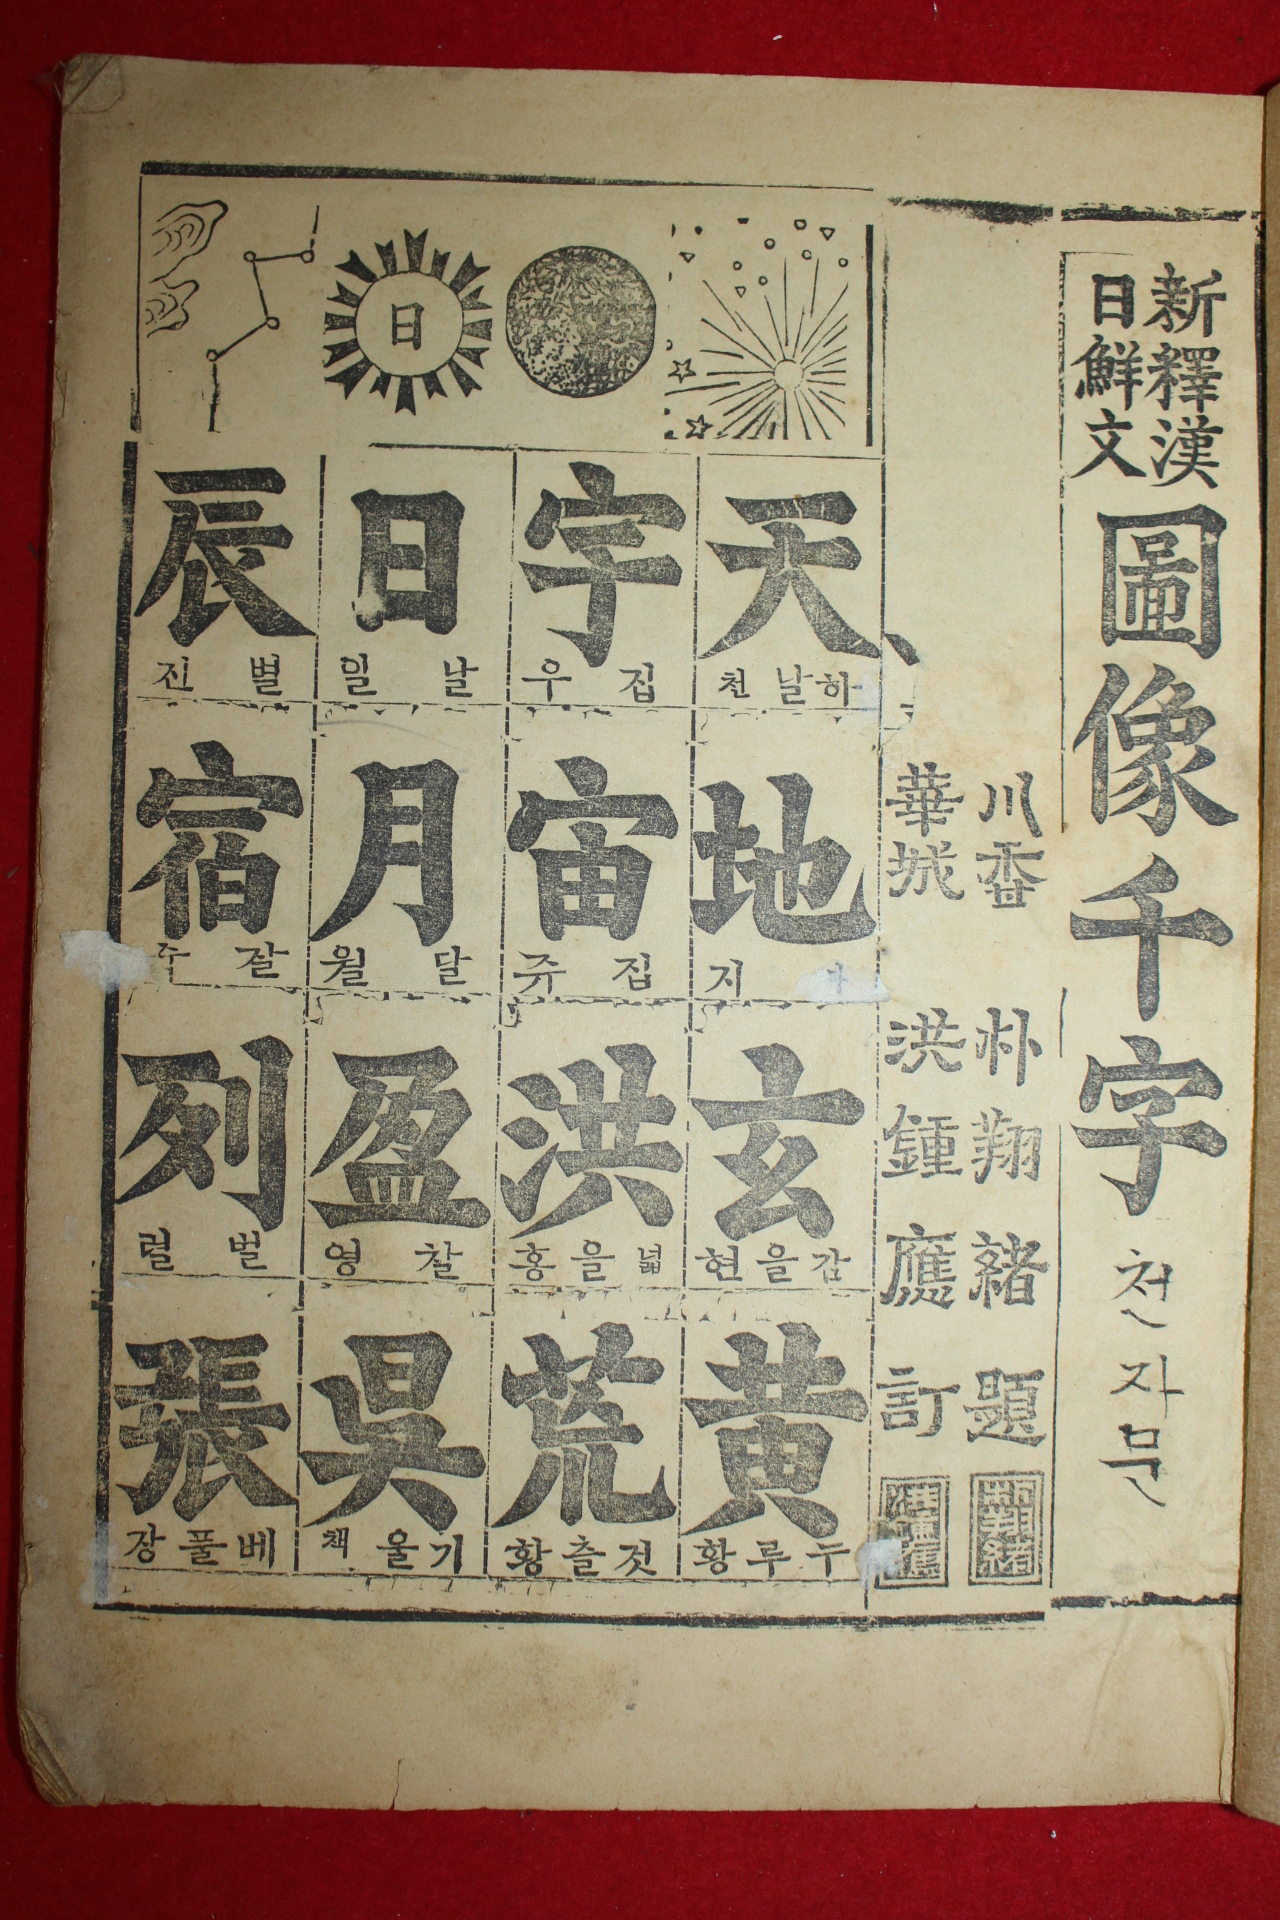 新釋漢
日鮮文
圖像千字
천자문
川香 朴翔緖 題
華城 洪鍾應 訂
日
天
하날 천
地
지
玄
감을 현
黃
누루 황
宇
집 우
宙
집 쥬
洪
넓을 홍
荒
것츨 황
日
날 일
月
달 월
盈
찰 영
昃
기울 책
辰
별 진
宿
잘 주
列
벌 렬
張
베풀 장